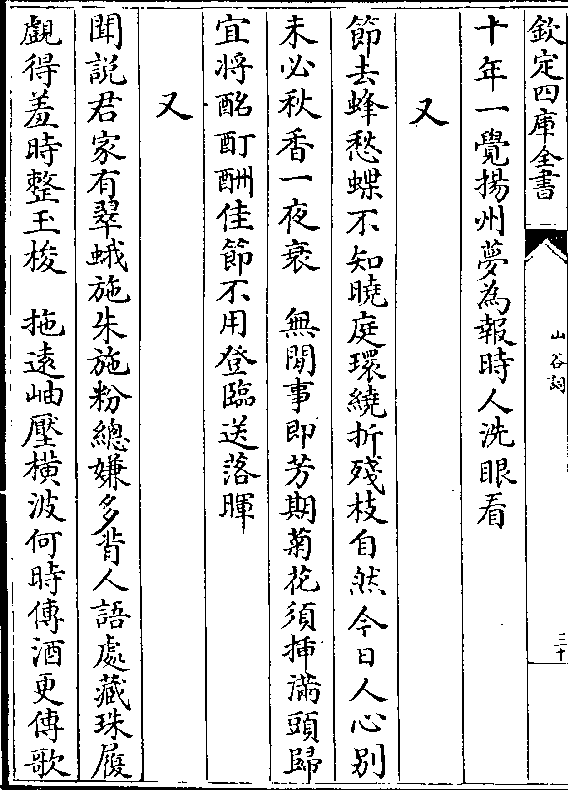 欽定四庫全書
山谷詞
三十
十年一覺揚州夢為報時人洗眼看
又
節去蜂愁蝶不知曉庭環繞折殘枝自然今日人心别
未必秋香一夜衰　無閒事即芳期菊花須揷滿頭歸
宜將酩酊酬佳節不用登臨送落暉
又
聞說君家有翠蛾施朱施粉總嫌多背人語處藏珠履
覷得羞時整玉梭　拖遠岫壓橫波何時傳酒更傳歌